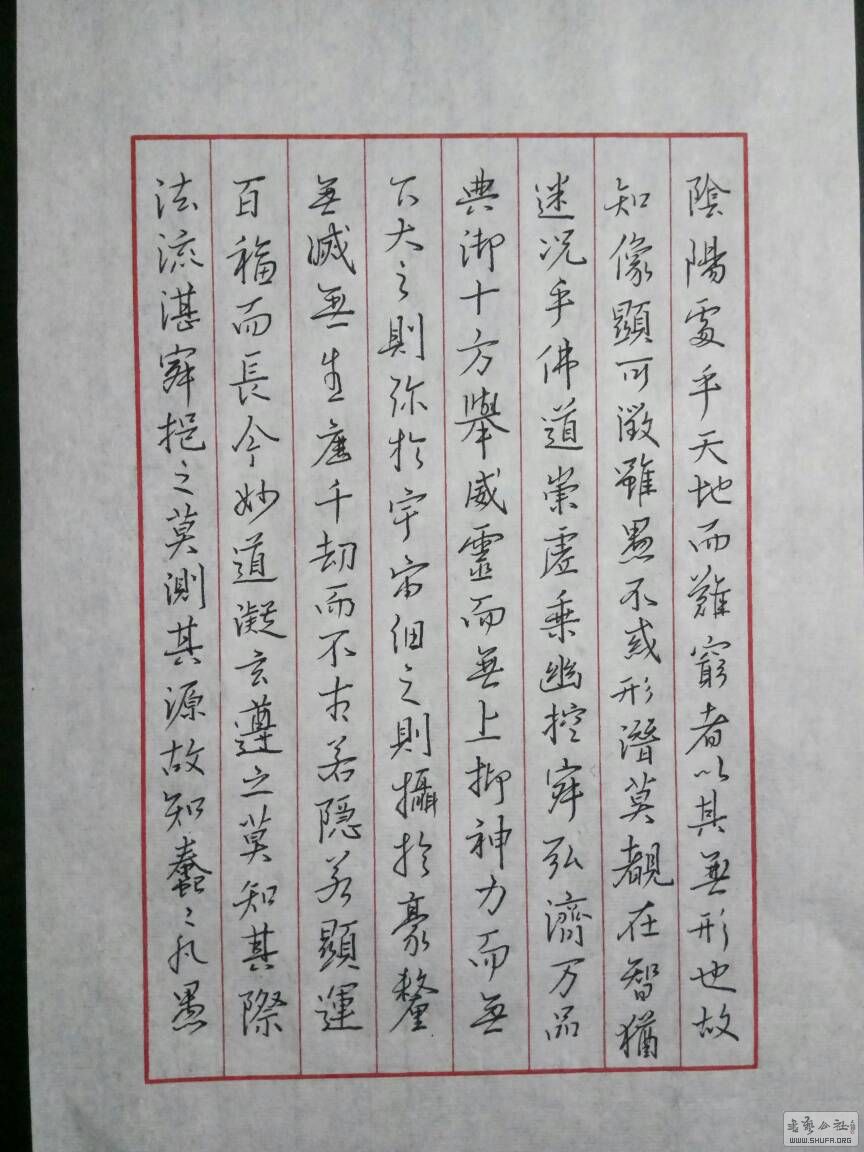 陰陽處乎天地而難窮者以其無形也故
知像顯可徵雖愚不惑形潛莫覩在智猶
迷况乎佛道崇虛乘幽控寂弘濟万品
典御十方舉威靈而無上抑神力而無
下大之則弥於宇宙細之則攝於豪釐
無滅無生歷千劫而不古若隱若顯運
百福而長今妙道凝玄遵之莫知其際
法流湛寂挹之莫測其源故知蠢〻凡愚
書藝公社
WWW.SHUFA.ORG